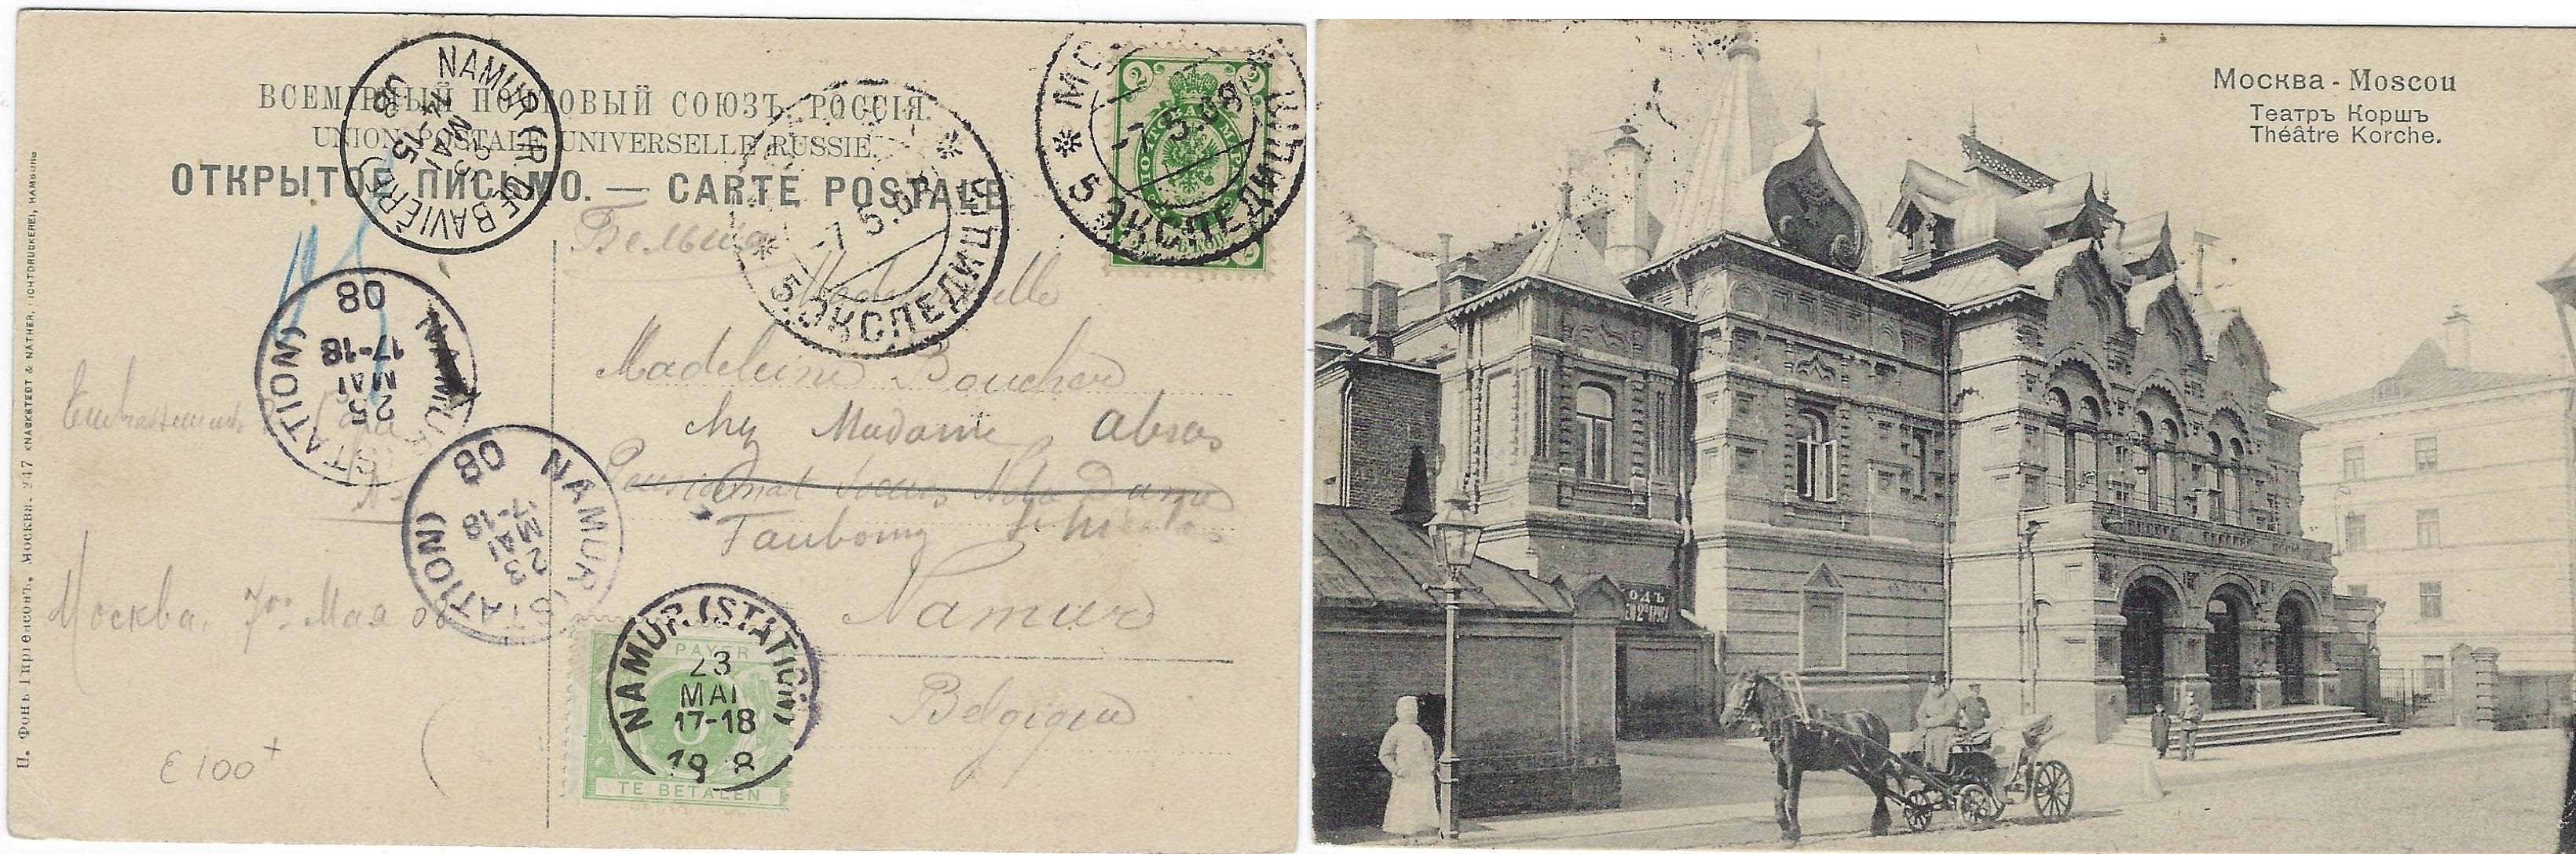 ВСЕМІРНЫЙ ПОЧТОВЫЙ СОЮЗЪ. РОССІЯ.
UNION POSTALE UNIVERSELLE RUSSIE.
ОТКРЫТОЕ ПИСЬМО. — CARTE POSTALE
NAMUR (R. DE BAVIÈRE)
08
5 ЭКСПЕДИЦ
-7 5.0
2 2
5 ЭКСПЕДИЦІЯ
-7.5.08
Mademoiselle
Madeleine Boucher
chez Madame Abras
Pensionnat Soeurs Notre Dame
Faubourg
Namur
Belgique
Papa
Москва. 7го Мая 08
NAMUR (STATION)
25
MAI
17-18
08
NAMUR (STATION)
23
MAI
17-18
08
NAMUR (STATION)
23
MAI
17-18
19 8
PAYER
TE BETALEN
£100+
Москва. 247 KNACKSTEDT & NÄTHER, LICHTDRUCKEREI, HAMBURG
Москва - Moscou
Театръ Коршъ
Théâtre Korche.